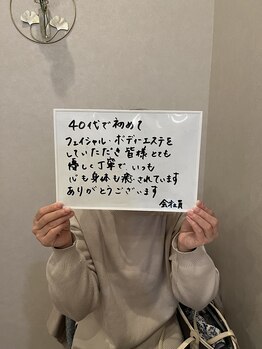 40代で初めて
フェイシャル・ボディエステを
していただき皆様とても
優しく丁寧で いつも
心も身体も癒されています
ありがとうございます
会社員